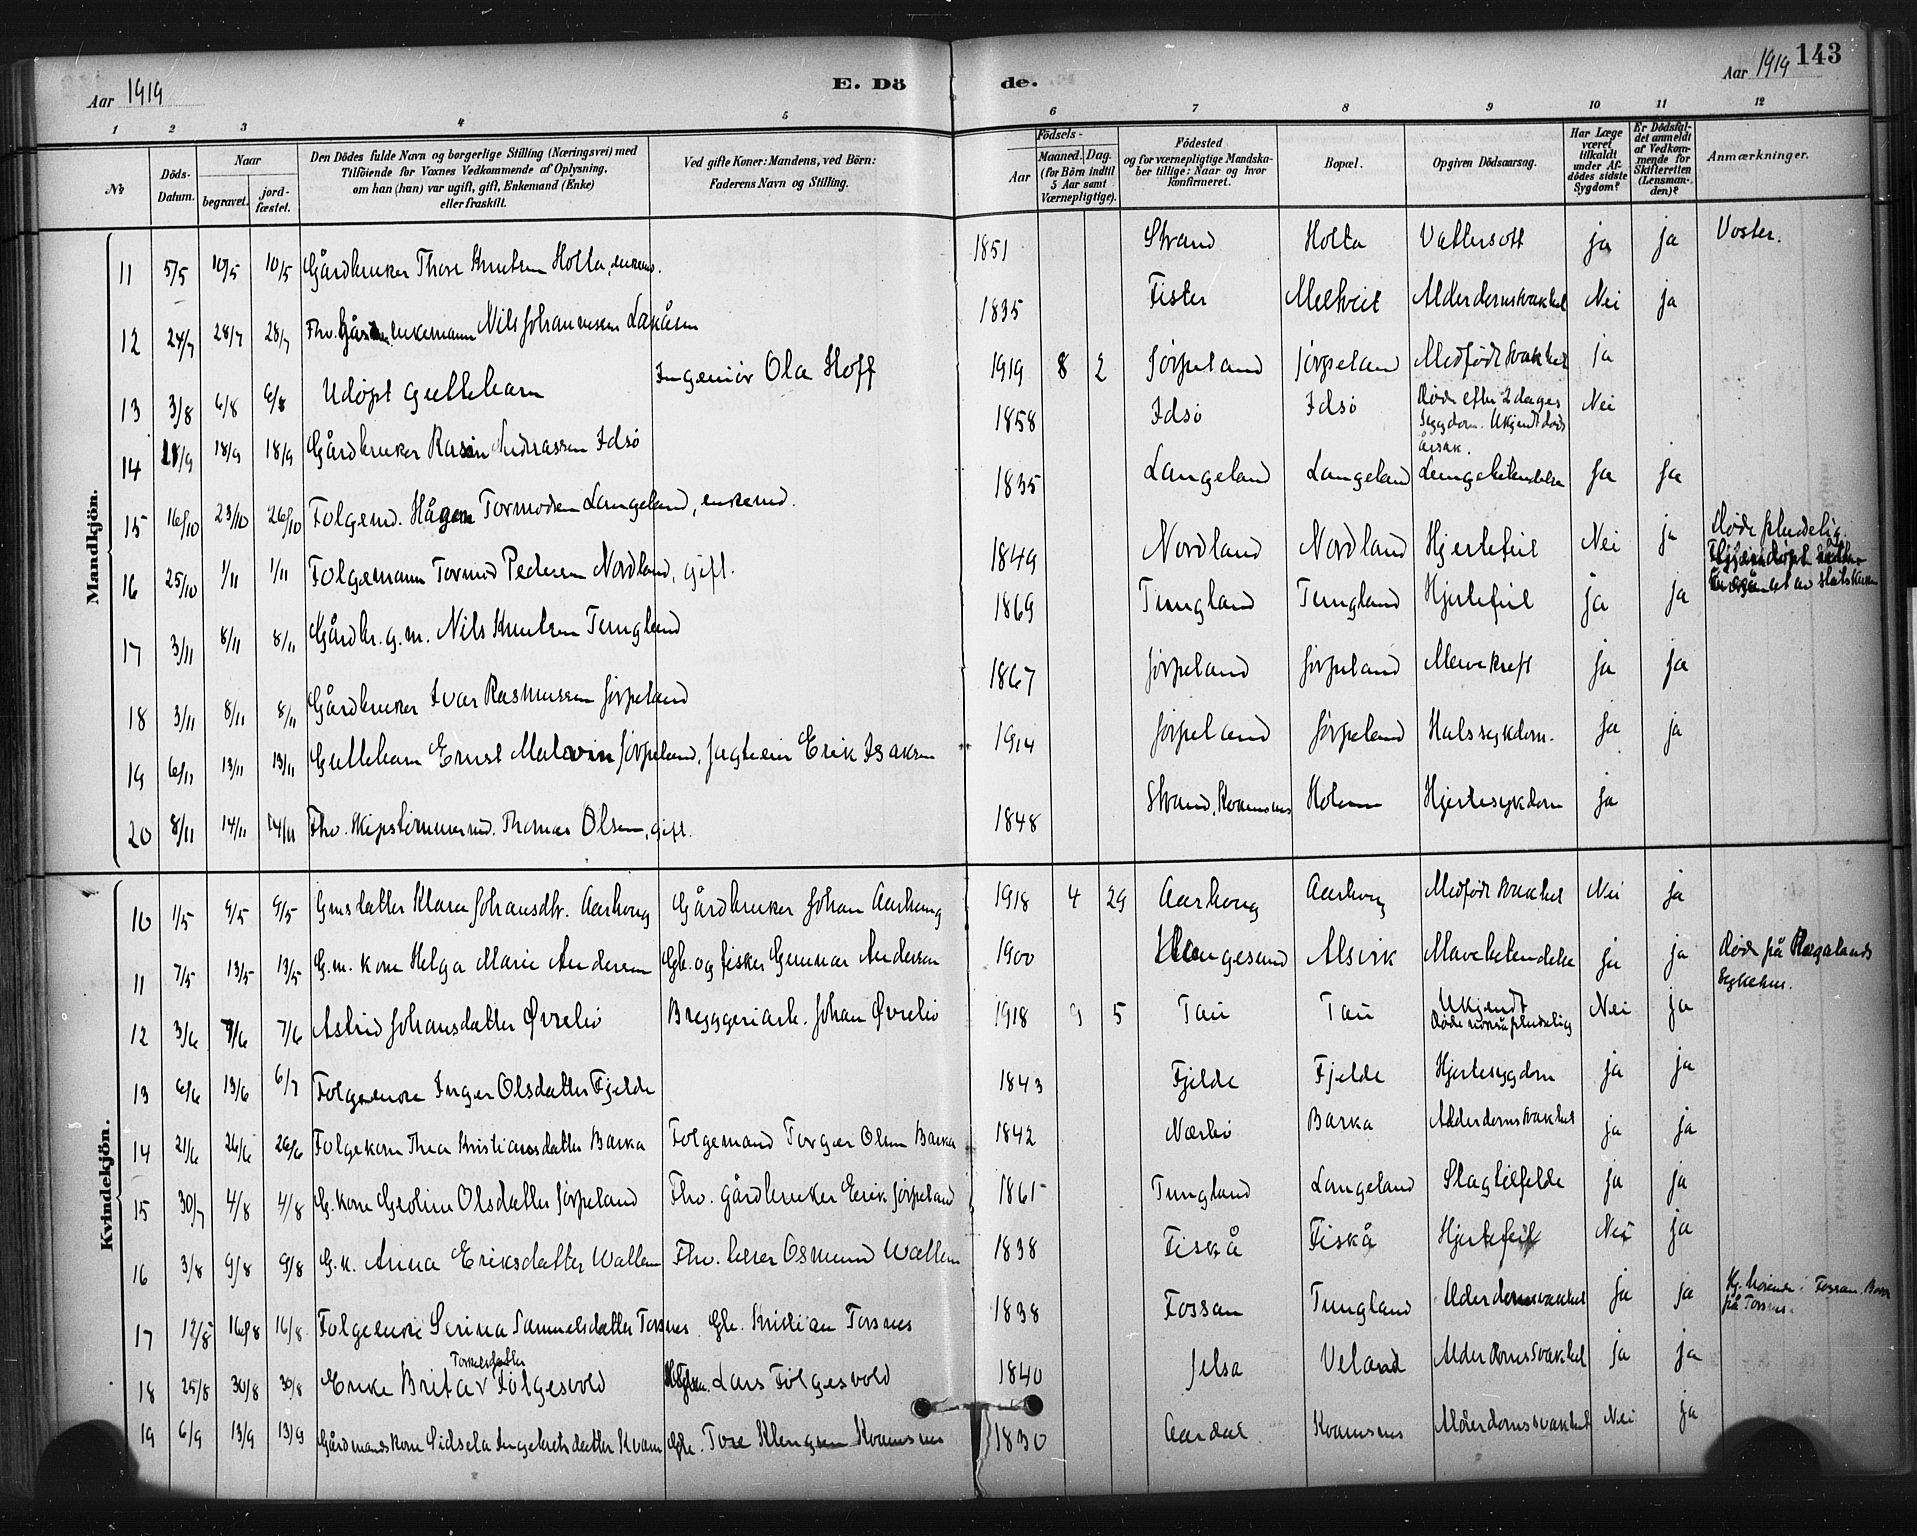 Aar 1919
E. Dö de.
Aar 1919 143
1 2 3 4 5 6 7 8 9 10 11 12
No
Döds-Datum.
Naar
begravet.
jord-fæstet.
Den Dödes fulde Navn og borgerlige Stilling (Næringsvei) med
Tilföiende for Voxnes Vedkommende af Oplysning,
om han (hun) var ugift, gift, Enkemand (Enke)
eller fraskilt.
Ved gifte Koner: Mandens, ved Börn:
Faderens Navn og Stilling.
Födsels-
Aar
Maaned. Dag.
(for Börn indtil
5 Aar samt
Værnepligtige).
Födested
og for værnepligtige Mandska-
ber tillige: Naar og hvor
konfirmeret.
Bopæl.
Opgiven Dödsaarsag.
Har Læge
været
tilkaldt
under Af-
dödes sidste
Sygdom?
Er Dödsfal-
det anmeldt
af Vedkom-
mende for
Skifteretten
(Lensman-
den)?
Anmærkninger.
Mandkjön.
11 5/5 10/5 10/5 Gårdbruker Thore Knutsen Holta, enkem. 1851 Strand Holta Vattersott ja ja Voster.
12 24/7 28/7 28/7 Fhv. enkemann Nils Johannesen 1835 Fister Melkeit Alderdomssvakhet Nei ja
13 3/8 6/8 6/8 Udöpt guttebarn Ingeniör Ola Hoff 1919 8 2 Jörpeland Jörpeland Medfödt svakhet ja
14 18/9 18/9 Gårdbruker Andreassen Idsö 1858 Idsö Idsö Död efter 2 dages
sygdom. Ukjendt döds
årsak. Nei
15 16/10 23/10 26/10 Folgem. Hågen Tormodsen Langeland, enkemd. 1835 Langeland Langeland Lungebetendelse ja ja
16 25/10 1/11 1/11 Folgemann Tormod Pedersen Nordland, gift. 1849 Nordland Nordland Hjertefeil Nei ja Döde pludselig
17 3/11 8/11 8/11 Gårdbr. g.m. Nils Knutsen Tungland 1869 Tungland Tungland Hjertefeil ja ja
18 3/11 8/11 8/11 Gårdbruker Ivar Rasmussen Jörpeland 1867 Jörpeland Jörpeland Mavekreft ja ja
19 6/11 13/11 13/11 Guttebarn Ernst Malvin Jörpeland, Jagteier Erik Isaksen 1914 Jörpeland Jörpeland Halssykdom. ja ja
20 8/11 14/11 14/11 Fhv. Skipstömmermd. Thomas Olsen, gift. 1848 Strand, Kvamsnes Holmen Hjertesykdom ja
Kvindekjön.
10 1/5 9/5 9/5 Gmsdatter Klara Johansdtr. Aarhoug Gårdbruker Johan Aarhaug 1918 4 29 Aarhoug Aarhoug Medfödt svakhet Nei ja
11 7/5 13/5 13/5 G.m. kone Helga Marie Andersen Gb. og fisker Gunnar Andersen 1900 Alsvik Mavebetendelse ja ja Död på Rogalands
sykehus.
12 3/6 7/6 7/6 Astrid Johansdatter Övrebö Bryggeriarb. Johan Övrebö 1918 9 5 Tau Tau Ukjendt
Döde pludselig Nei ja
13 6/6 13/6 6/7 Folgeenke Inger Olsdatter Fjelde 1843 Fjelde Fjelde Hjertesygdom ja ja
14 21/6 26/6 26/6 Folgekone Thea Kristiansdatter Barka Folgemand Torger Olsen Barka 1842 Nærbö Barka Alderdomssvakhet ja ja
15 30/7 4/8 4/8 G. kone Geoline Olsdatter Jörpeland Fhv. gårdbruker Erik Jörpeland 1865 Tungland Langeland Slagtilfelde ja ja
16 3/8 9/8 9/8 G.k. Anna Eriksdatter Watlem Fhv. lærer Osmund Watlem 1838 Fiskå Fiskå Hjertefeil Nei ja
17 12/8 16/8 16/8 Folgeenke Serina Samuelsdatter Torsnes Gb. Kristian Torsnes 1838 Fossan Tungland Alderdomssvakhet ja ja Hj. hörende i Fossan. Bor
på Torsnes.
18 25/8 30/8 30/8 Enke Brita Torkelsdatter Fölgesvold Lars Fölgesvold 1840 Jelsa Veland Alderdomssvakhet ja ja
19 6/9 13/9 13/9 Gårdmandskone Sidsela Ingebretsdatter Kvam Gb. Tore Kvamsnes 1830 Aardal Kvamsnes Alderdomssvakhet Nei ja